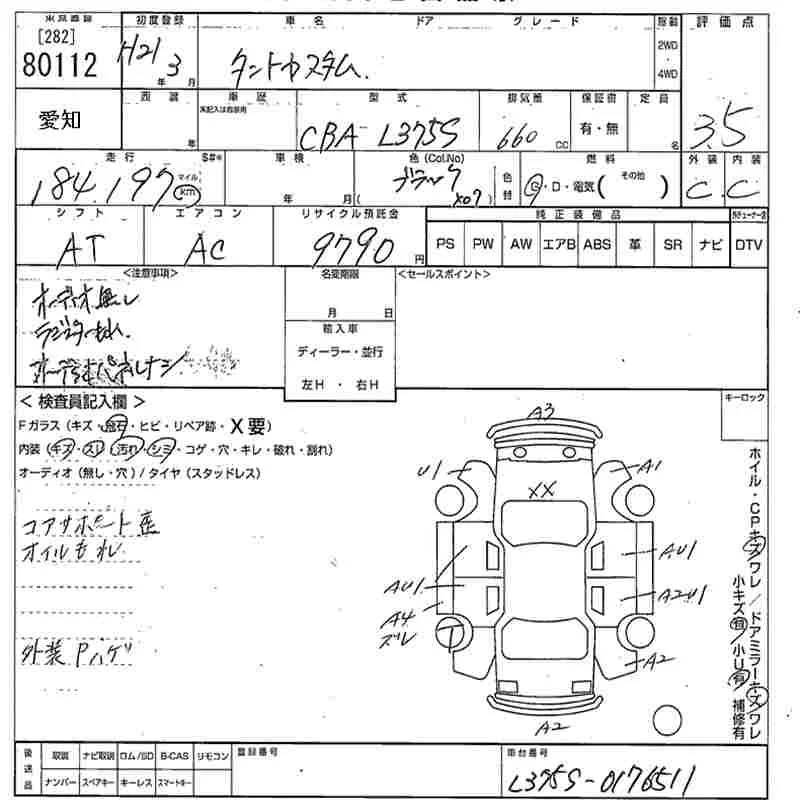 初度登録 車名 ドア グレード 評価点
[282]
80112 H21 3 タントカスタム 2WD
年 月 4WD
愛知 車歴 型式 排気量 保証書 定員
CBA-L375S 660 CC 有・無 名 3.5
年
走行 車検 色(Col.No) 燃料 外装 内装
184,197 マイル km 年 月 ブラック X07 色替 G・D・電気( その他 ) C C
シフト エアコン リサイクル預託金 純正装備品
AT AC 9790 円 PS PW AW エアB ABS 革 SR ナビ DTV
<注意事項> 名変期限 <セールスポイント>
オーディオ無し 月 日
ラジエターもれ 輸入車
ディーラー・並行
左H・右H
<検査員記入欄> キーロック
Fガラス(キズ・飛石・ヒビ・リペア跡・X要)
内装(キズ・スレ・汚れ・シミ・コゲ・穴・キレ・破れ・割れ)
オーディオ(無し・穴)/タイヤ(スタッドレス)
コアサポート歪
オイルもれ
外装Pハゲ
A3
U1 A1
XX
AU1
AU1 A2U1
A4
ズレ
T
A2
A2
ホイル・CPキズワレ/ドアミラーキズワレ
小キズ有/小U有 補修有
後送品 取説 ナビ取説 ロム/SD B-CAS リモコン 登録番号 車台番号
ナンバー スペアキー キーレス スマートキー L375S-0176511